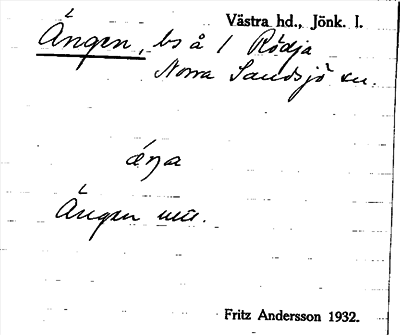 Västra hd., Jönk. l.
Ängen, bs å 1 Rödja
Norra Sandsjö sn.
áŋa
Ängen uttr.
Fritz Andersson 1932.